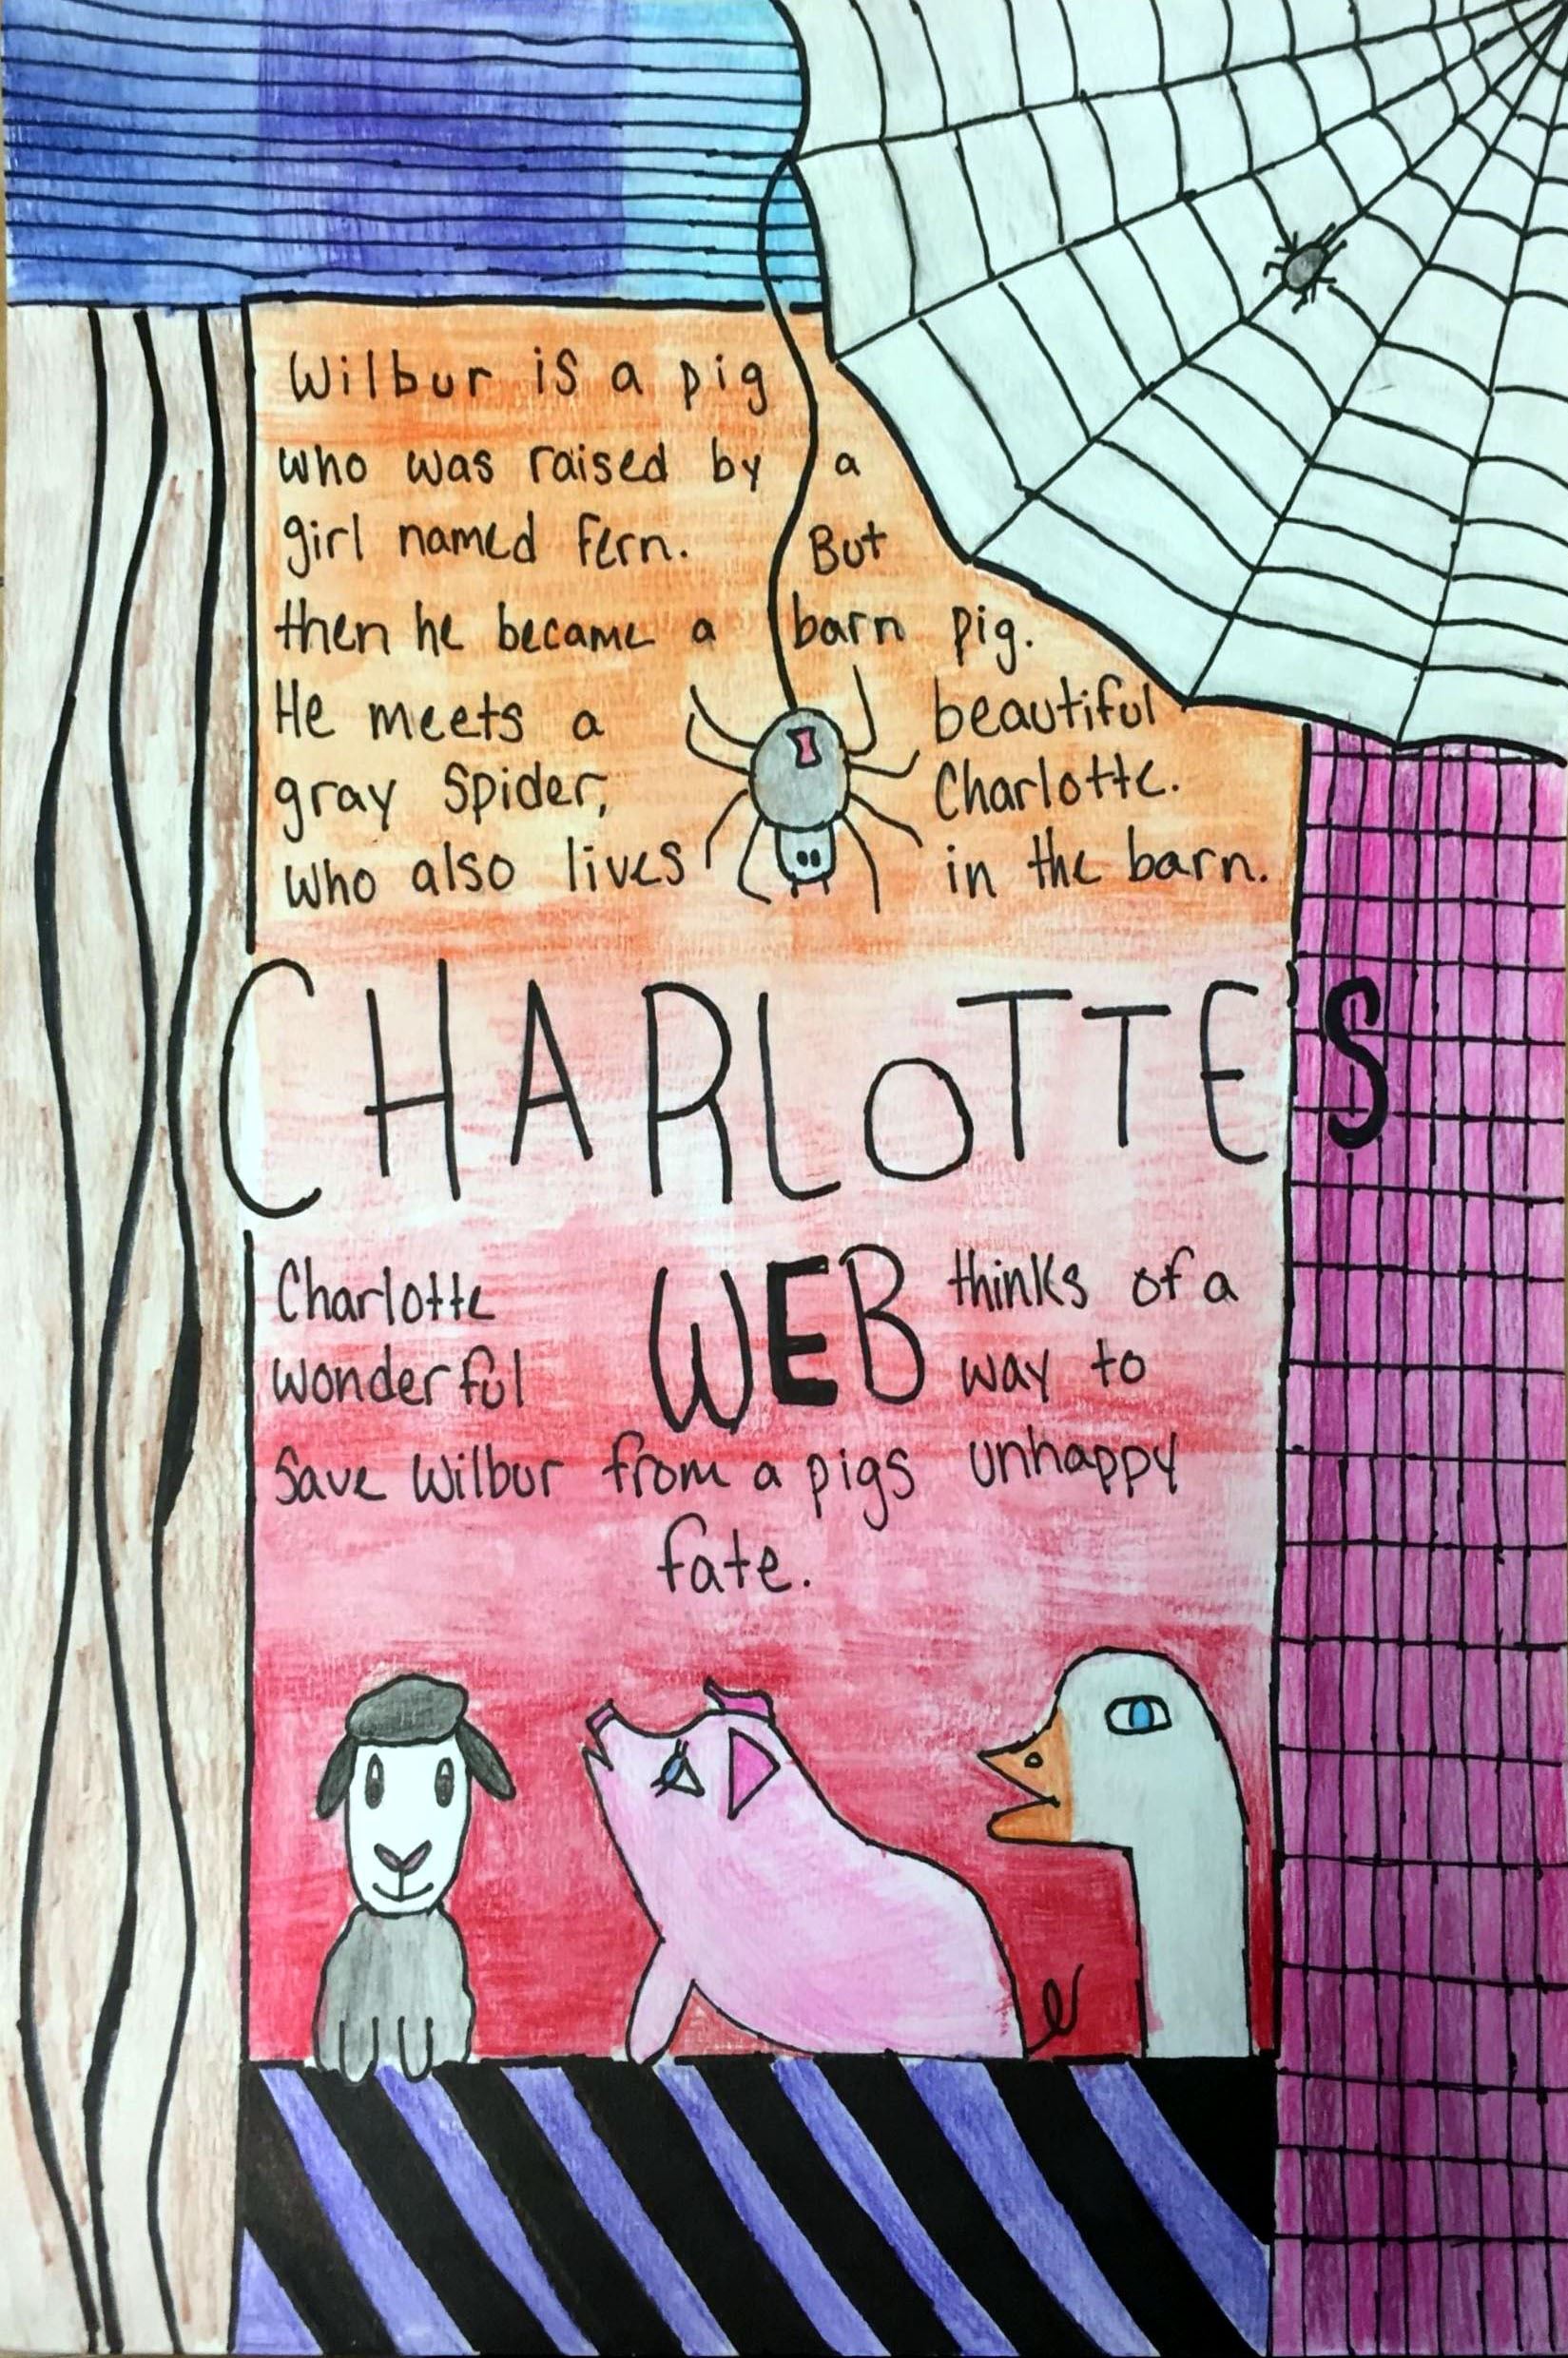 Wilbur is a pig
who was raised by a
girl named Fern. But
then he became a barn pig.
He meets a beautiful
gray Spider, Charlotte.
who also lives in the barn.
CHARLOTTE'S
WEB
Charlotte thinks of a
wonderful way to
Save Wilbur from a pigs unhappy
fate.